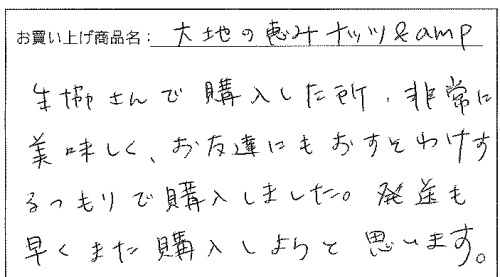 お買い上げ商品名： 大地の恵みナッツ&amp
生協さんで購入した所、非常に
美味しく、お友達にもおすそわけす
るつもりで購入しました。発送も
早くまた購入しようと思います。